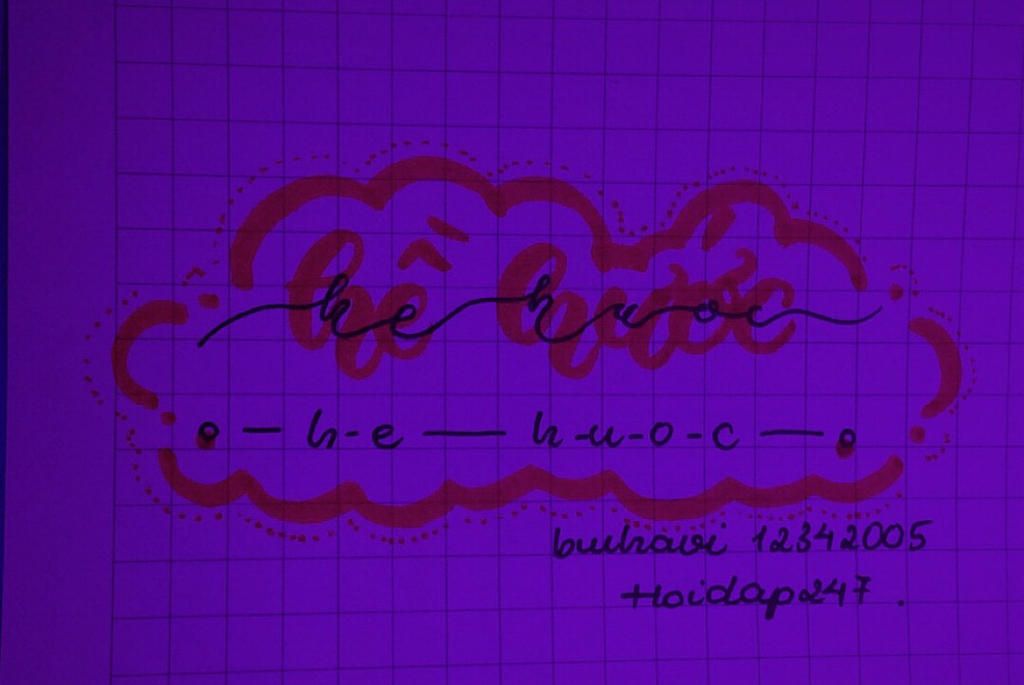 hề hước
he huoc
h-e — h-u-o-c
buihavi 12342005
Hoidap247.